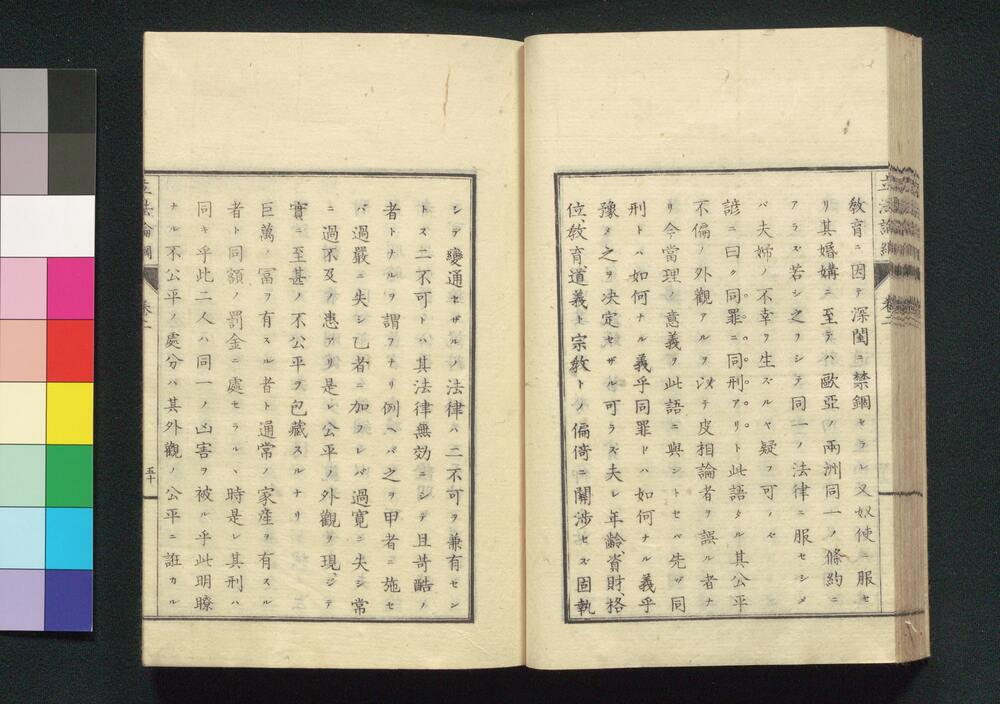 立法論綱 卷二
教育ニ因テ深閨ニ禁錮セラレ又奴使ニ服セ
リ其婚媾ニ至テハ歐亞ノ兩洲同一ノ條約ニ
アラズ若シ之ヲシテ同一ノ法律ニ服セシメ
バ夫婦ノ不幸ヲ生ズルヤ疑フ可ノヤ
諺ニ曰ク同罪ニ同刑アリト此語タル其公平
不偏ノ外觀アルヲ以テ皮相論者ヲ誤ル者ナ
リ今當理ノ意義ヲ此語ニ與シトセバ先ヅ同
刑トハ如何ナル義乎同罪トハ如何ナル義乎
豫メ之ヲ决定セザル可ラズ夫レ年齡資財格
位、敎育道義ト宗敎トノ偏倚ニ關涉セズ固執
シテ變通セザルノ法律ハ二不可ヲ兼有セン
トス二不可トハ其法律無効ニシテ且苛酷ノ
者トナルヲ謂フナリ例ヘバ之ヲ甲者ニ施セ
バ過嚴ニ失シ乙者ニ加フレバ過寛ニ失シ常
ニ過不及ノ患アリ是レ公平ノ外觀ヲ現ジテ
實ニ至甚ノ不公平ヲ包藏スルナリ
巨萬ノ冨ヲ有スル者ト通常ノ家産ヲ有スル
者ト同額ノ罰金ニ處セラルヽ時是レ其刑ハ
同キ乎此二人ハ同一ノ凶害ヲ被ル乎此明瞭
ナル不公平ノ處分ハ其外觀ノ公平ニ誑カル
立法論綱 卷二 五十